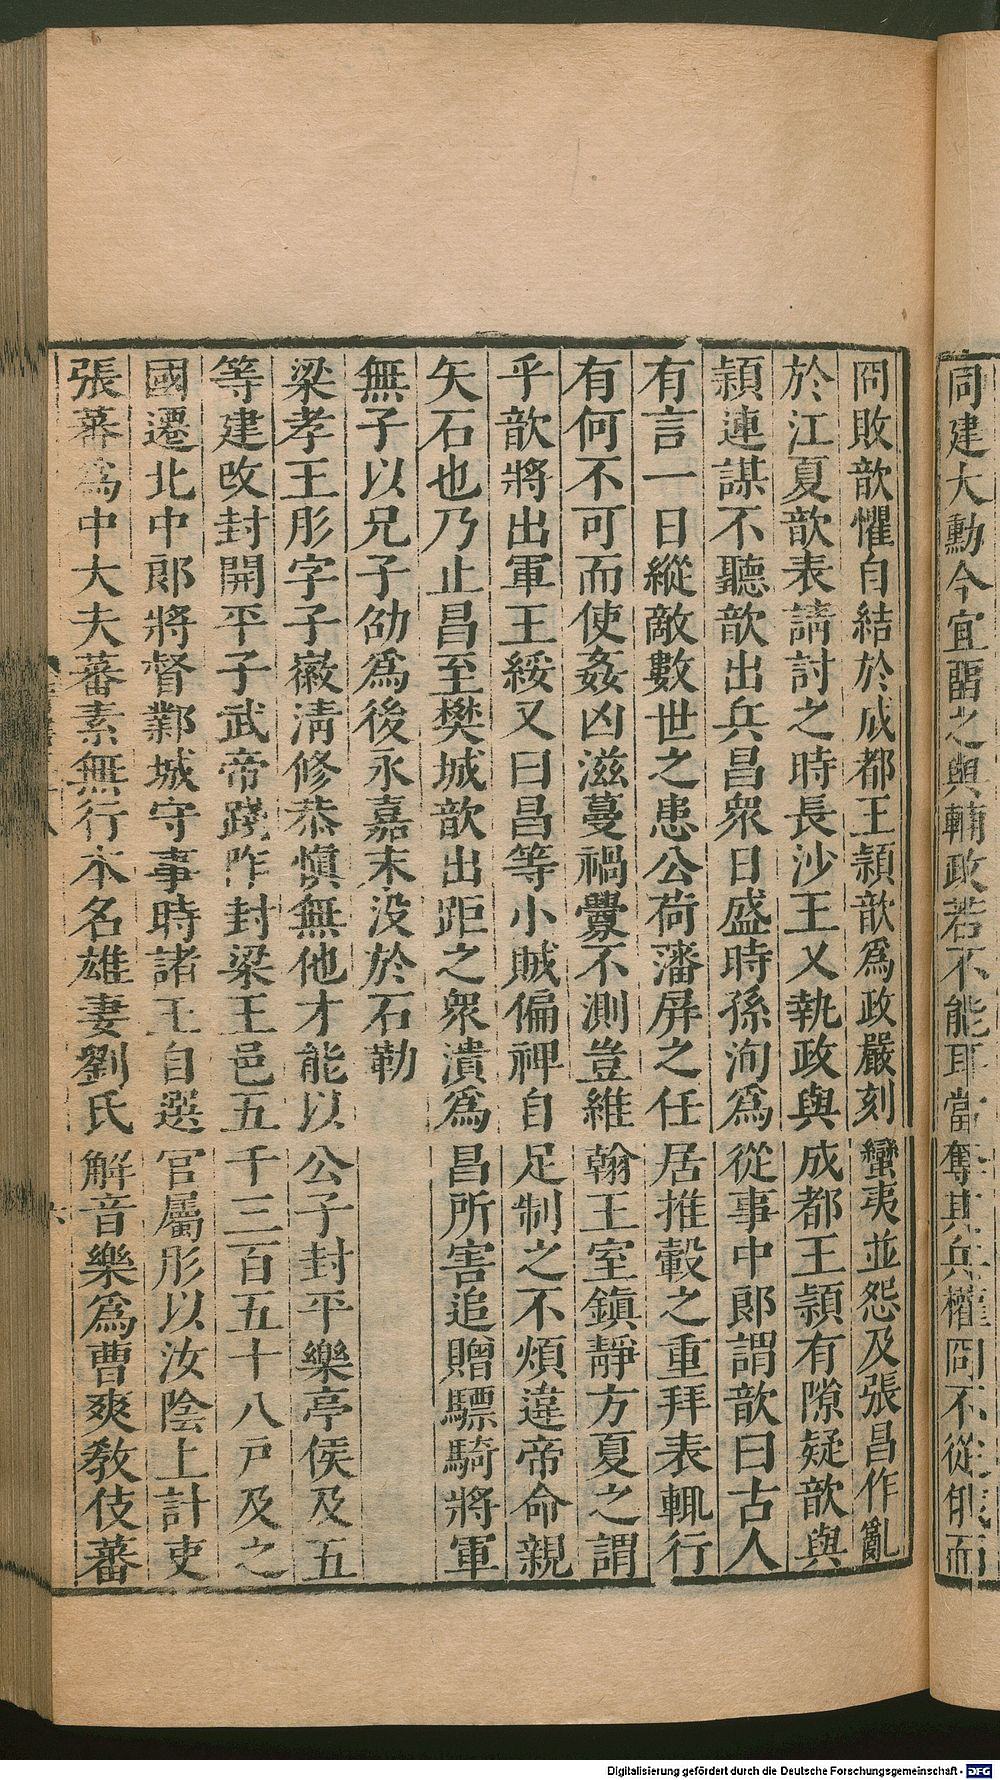 同建大勳今宜留之與輔政若不能耳當奪其兵權冏不從俄而
冏敗歆懼自結於成都王穎歆爲政嚴刻蠻夷並怨及張昌作亂
於江夏歆表請討之時長沙王乂執政與成都王穎有隙疑歆與
穎連謀不聽歆出兵昌衆日盛時孫洵爲從事中郎謂歆曰古人
有言一日縱敵數世之患公荷藩屏之任居推轂之重拜表輒行
有何不可而使姦凶滋蔓禍釁不測豈維翰王室鎮靜方夏之謂
乎歆將出軍王綏又曰昌等小賊偏裨自足制之不煩違帝命親
矢石也乃止昌至樊城歆出距之衆潰爲昌所害追贈驃騎將軍
無子以兄子劭爲後永嘉末没於石勒
梁孝王肜字子徽清修恭慎無他才能以公子封平樂亭侯及五
等建改封開平子武帝踐阼封梁王邑五千三百五十八戸及之
國遷北中郎將督鄴城守事時諸王自選官屬肜以汝陰上計吏
張蕃爲中大夫蕃素無行本名雄妻劉氏解音樂爲曹爽教伎蕃
Digitalisierung gefördert durch die Deutsche Forschungsgemeinschaft - DFG